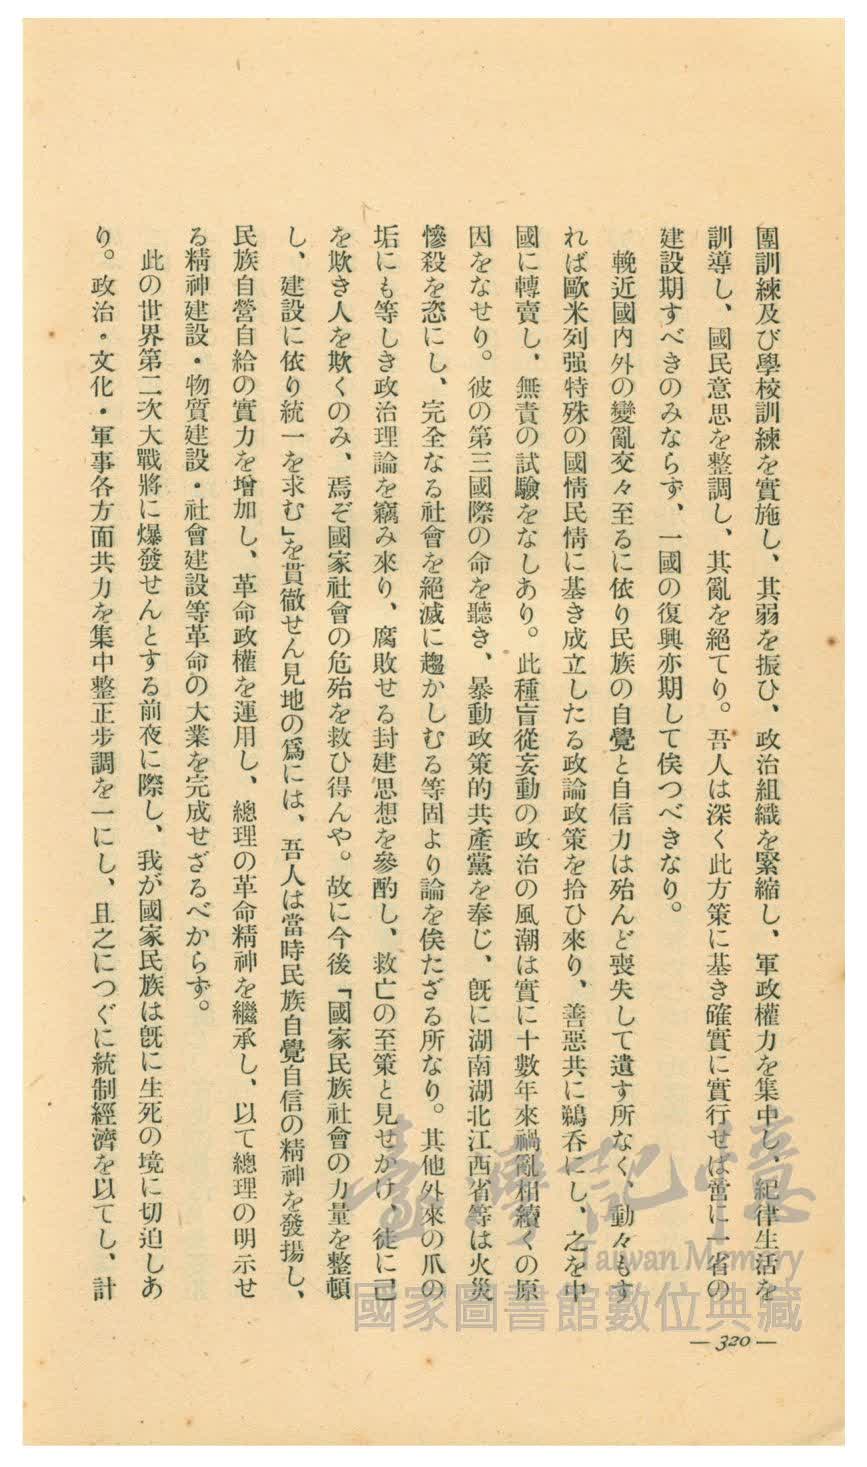 團訓練及び學校訓練を實施し、其弱を振ひ、政治組織を緊縮し、軍政權力を集中し、紀律生活を
訓導し、國民意思を整調し、其亂を絕てり。吾人は深く此方策に基き確實に實行せば啻に一省の
建設期すべきのみならず、一國の復興亦期して俟つべきなり。
輓近國內外の變亂交々至るに依り民族の自覺と自信力は殆んど喪失して遺す所なく、動々もす
れば歐米列强特殊の國情民情に基き成立したる政論政策を拾ひ來り、善惡共に鵜呑にし、之を中
國に轉賣し、無責の試驗をなしあり。此種盲從妄動の政治の風潮は實に十數年來禍亂相續くの原
因をなせり。彼の第三國際の命を聽き、暴動政策的共產黨を奉じ、既に湖南湖北江西省等は火災
慘殺を恣にし、完全なる社會を絕滅に趨かしむる等固より論を俟たざる所なり。其他外來の爪の
垢にも等しき政治理論を竊み來り、腐敗せる封建思想を參酌し、救亡の至策と見せかけ、徒に己
を欺き人を欺くのみ、焉ぞ國家社會の危殆を救ひ得んや。故に今後「國家民族社會の力量を整頓
し、建設に依り統一を求む」を貫徹せん見地の爲には、吾人は當時民族自覺自信の精神を發揚し、
民族自營自給の實力を增加し、革命政權を運用し、總理の革命精神を繼承し、以て總理の明示せ
る精神建設・物質建設・社會建設等革命の大業を完成せざるべからず。
此の世界第二次大戰將に爆發せんとする前夜に際し、我が國家民族は既に生死の境に切迫しあ
り。政治・文化・軍事各方面共力を集中整正步調を一にし、且之につぐに統制經濟を以てし、計
臺灣記憶
Taiwan Memory
國家圖書館數位典藏
— 320 —